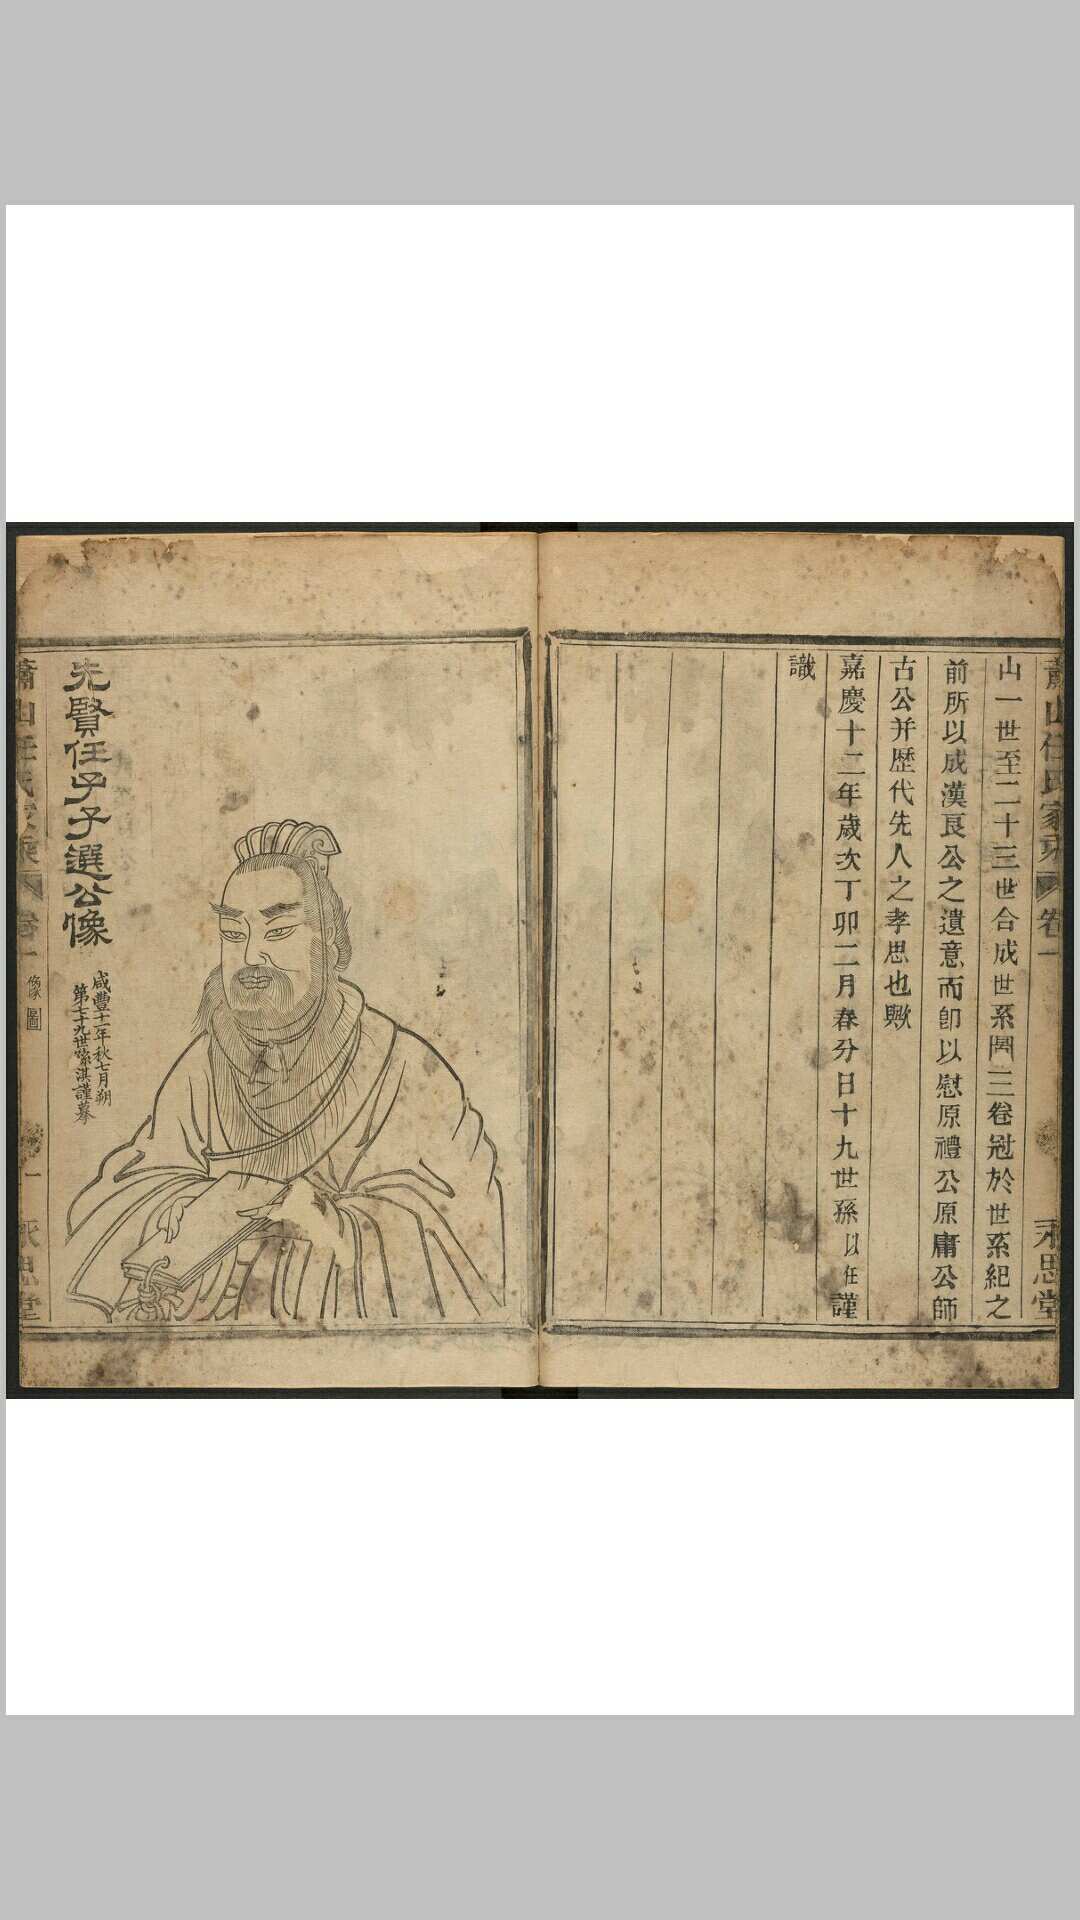 蕭山任氏家乘
卷一
永思堂
山一世至二十三世合成世系圖三卷冠於世系紀之
前所以成漢良公之遺意而卽以慰原禮公原庸公師
古公并歷代先人之孝思也歟
嘉慶十二年歲次丁卯二月春分日十九世孫以任謹
識
先賢任子子選公像
咸豐十一年秋七月朔
第七十九世裔淇謹摹
蕭山任氏家乘
卷一
像圖
一
永思堂